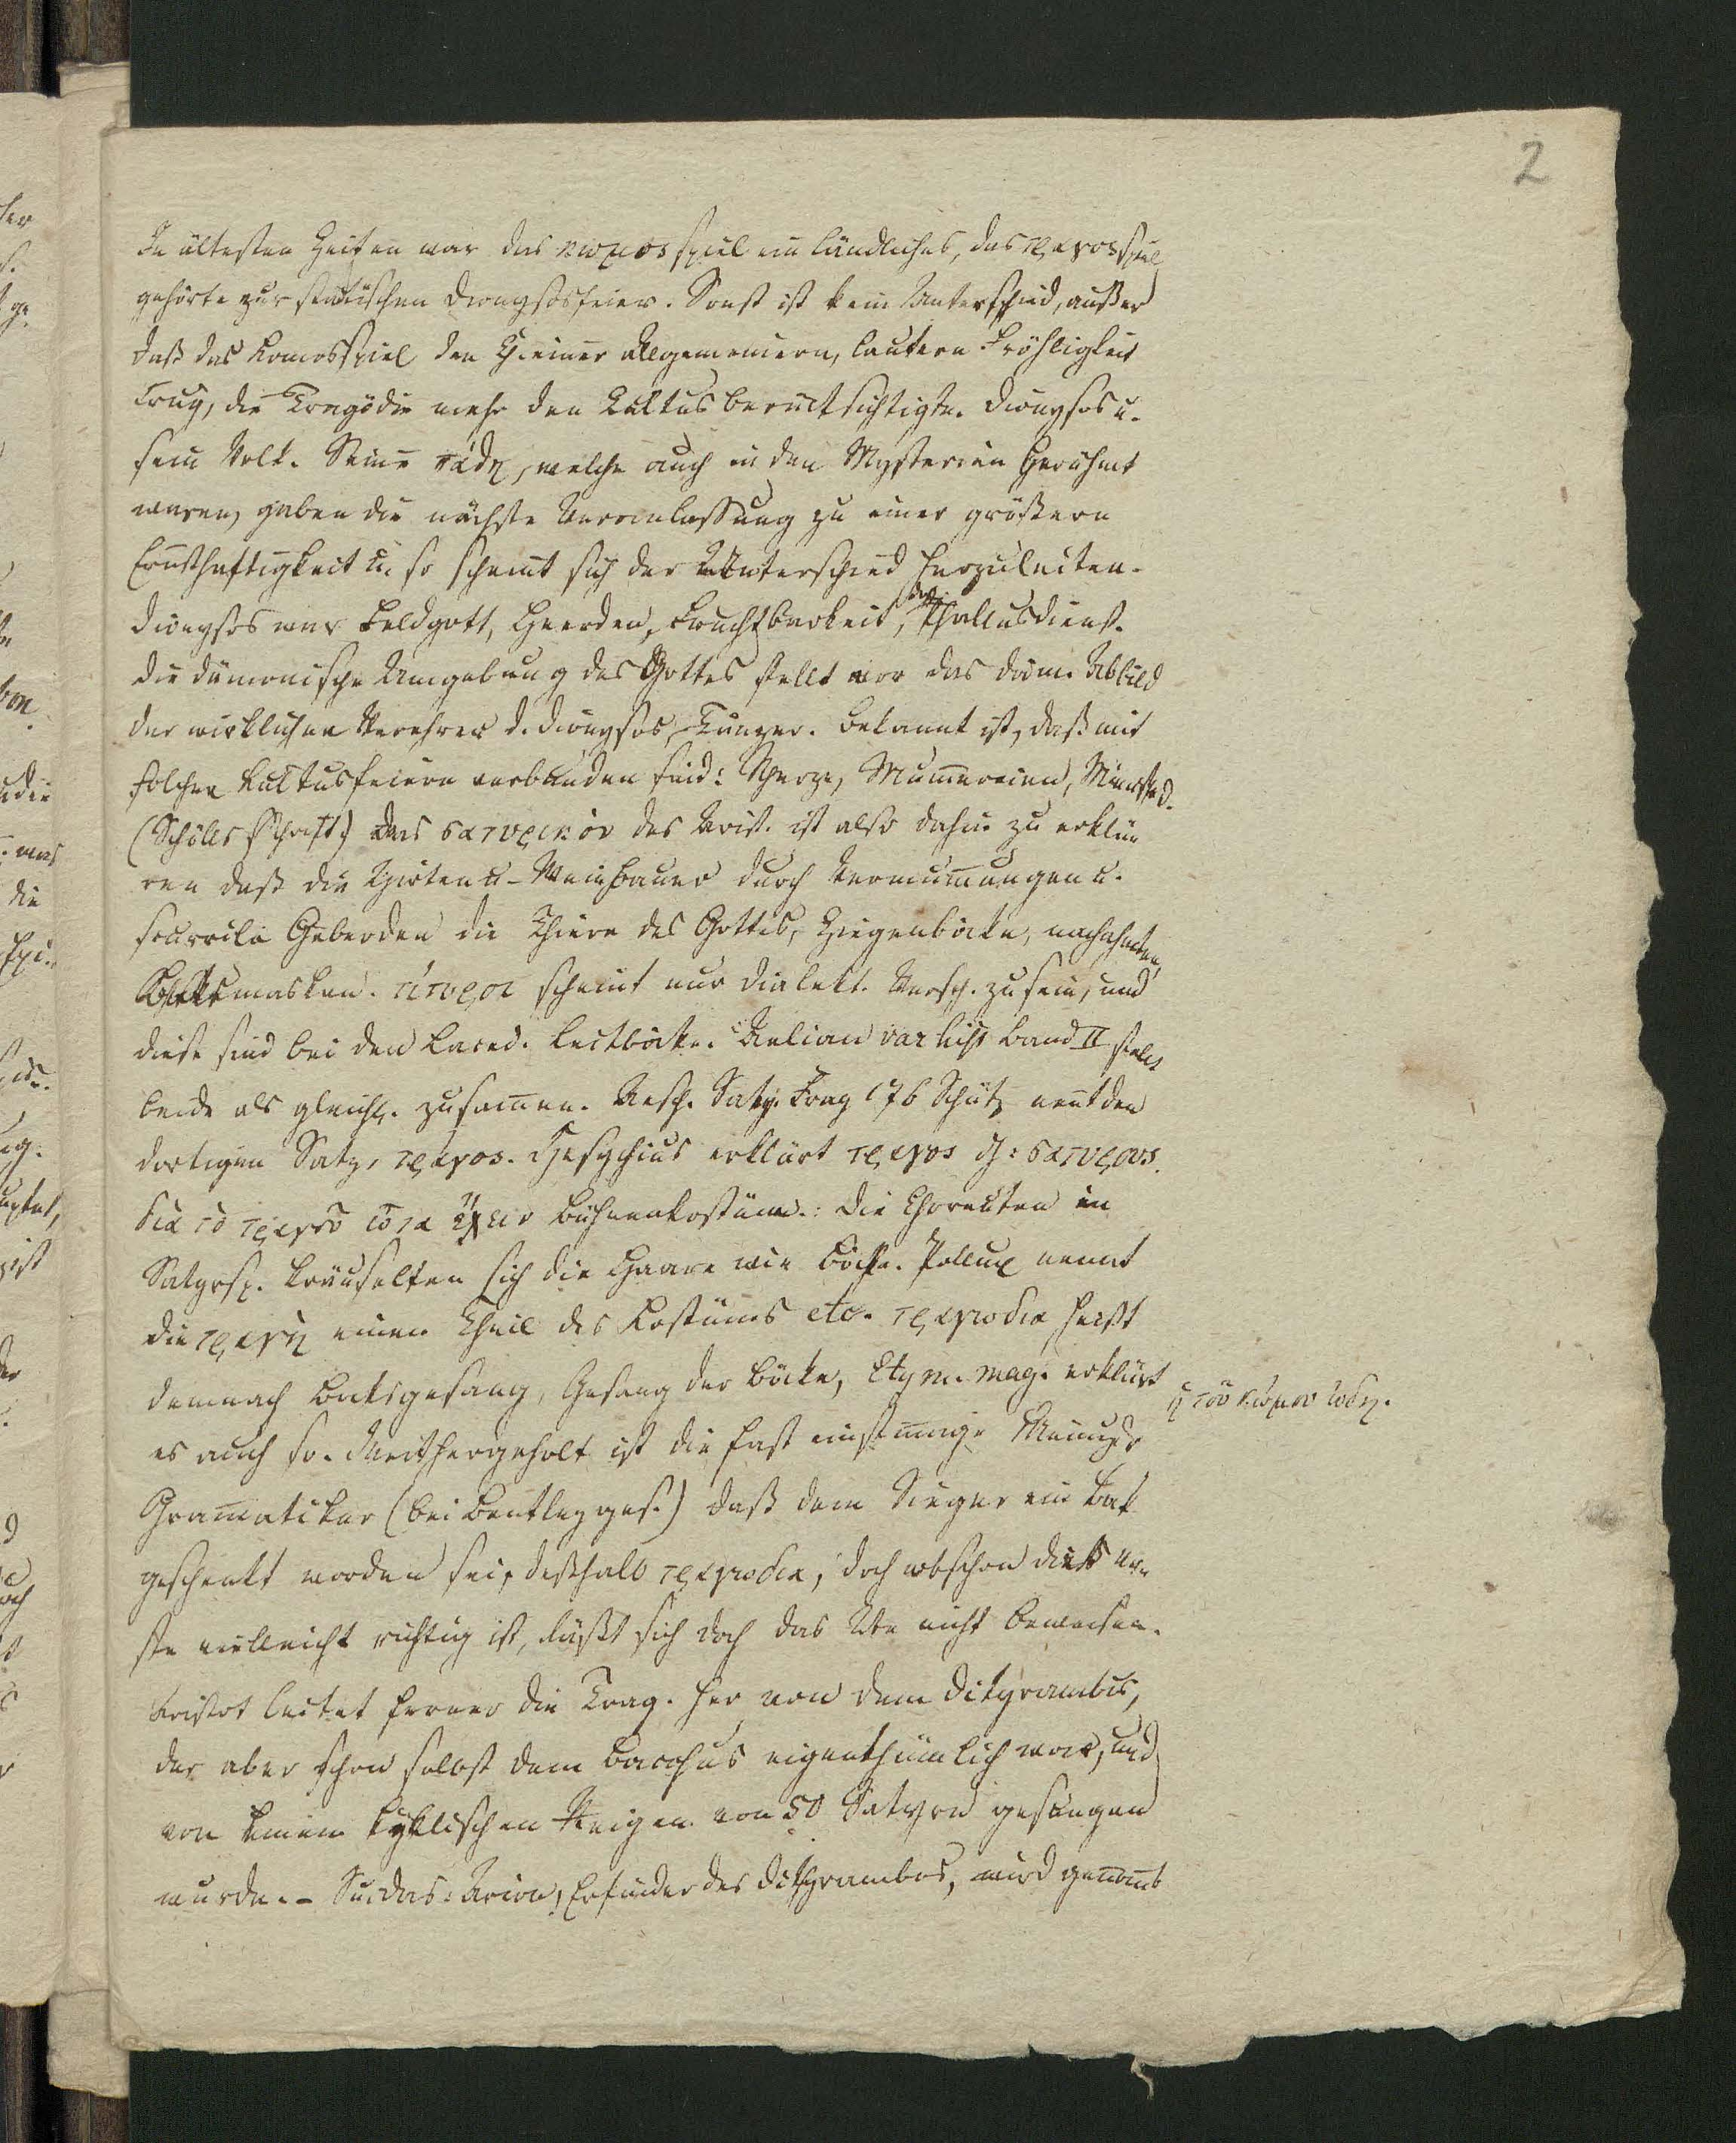 2
In ältesten Zeiten war das κωμοςspiel ein ländliches, das τραγοςspiel
gehörte zur städtischen Dionysosfeier. Sonst ist kein Unterschied, außer
daß das Komosspiel den einer allgemeinern, lautern Fröhligkeit
trug, die Tragödie mehr den Kultus berücksichtigte. Dionysos u.
sein Volk. Seine πάθη, welche auch in den Mysterien berühmt
waren, gaben die nächste Veranlassung zu einer größern
Ernsthaftigkeit u. so scheint sich der Unterschied herzuleiten.
Dionysos war Feldgott, Heerden, Fruchtbarkeit, Phallusdienst.
Die dämonische Umgebung des Gottes stellt vor das däm. Abbild
der wirklichen Verehrer d. Dionysos, Tänzer. Bekannt ist, daß mit
solchen Kultusfeiern verbunden sind: Scherze, Mummereien,
(Schölls Schrift.) Das σατυρικόν des Arist. ist also dahin zu erklä-
ren daß die Hirten u. Weinbauer durch Vermummungen u.
scurrile Geberden die Thiere des Gottes, Ziegenböcke, nachahmten,
Bocksmasken. τίτυροι scheint nur dialekt. Versch. zu sein, und
diese sind bei den Laced. Leitböcke. Aelian var hist Band II stellt
beide als gleichb. zusammen. Aesch. Saty. Frag 176 Schütz nennt den
dortigen Saty. τραγος. Hesychius erklärt τραγος d: σατυρους.
δια τὸ τραγου ωτα ἔχειν Bühnenkostüm.: Die Choreuten in
Satyrsp. kräuselten sich die Haare wie Böcke. Pollux nennt
die τραγῆ einen Theil des Kostüms etc. τραγωδια heißt
demnach Bocksgesang, Gesang der Böcke, Etym. mag. erklärt
es auch so. Weithergeholt ist die fast einstimmige Meinung d.
Grammatiker (bei Bentley ges.) daß dem Sieger ein Bok
geschenkt worden sei, deßhalb τραγωδια, doch obschon dieß er-
ste vielleicht richtig ist, läßt sich doch das 2te nicht beweisen.
Aristot leitet ferner die Trag. her von dem Dithyrambus,
der aber schon selbst dem Bacchus eigenthümlich war, und
von einem kyklischen Reigen von 50 Satyrn gesungen
wurde. - Suidas: Arion, Erfinder des Dithyrambos, wird genannt
ἡ τοῦ κώμου ὠδη.